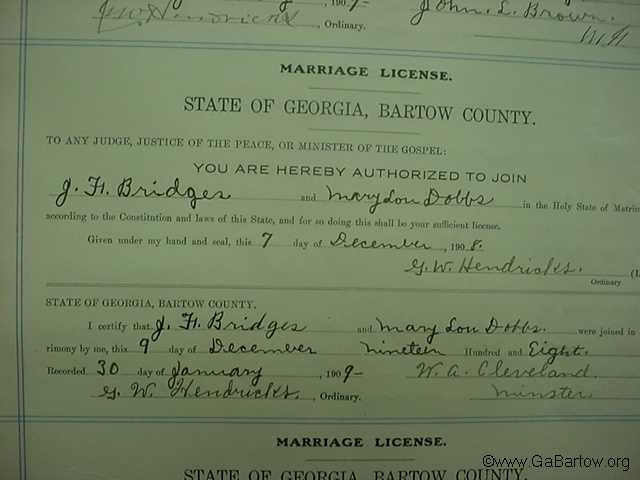 G. W. Hendricks , Ordinary. , 1909- John L. Brown.
M.G.
MARRIAGE LICENSE.
STATE OF GEORGIA, BARTOW COUNTY.
TO ANY JUDGE, JUSTICE OF THE PEACE, OR MINISTER OF THE GOSPEL:
YOU ARE HEREBY AUTHORIZED TO JOIN
J. H. Bridges and Mary Lou Dobbs in the Holy State of Matrim
according to the Constitution and laws of this State, and for so doing this shall be your sufficient license.
Given under my hand and seal, this 7 day of December , 190 8.
G. W. Hendricks. (L
Ordinary
STATE OF GEORGIA, BARTOW COUNTY.
I certify that J. H. Bridges and Mary Lou Dobbs. were joined in
rimony by me, this 9 day of December nineteen Hundred and Eight.
Recorded 30 day of January , 1909- W. A. Cleveland.
G. W. Hendricks. , Ordinary. Minster.
MARRIAGE LICENSE.
STATE OF GEORGIA, BARTOW COUNTY.
©www.GaBartow.org